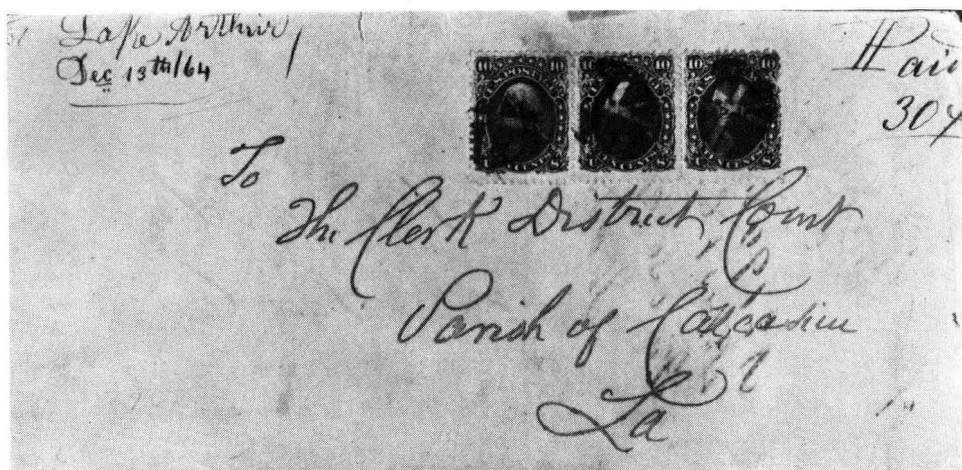 Lake Arthur,
Dec 13th/64
Paid
30¢
10 10
10 10
10 10
To
The Clerk District Court
Parish of Calcasieu
La